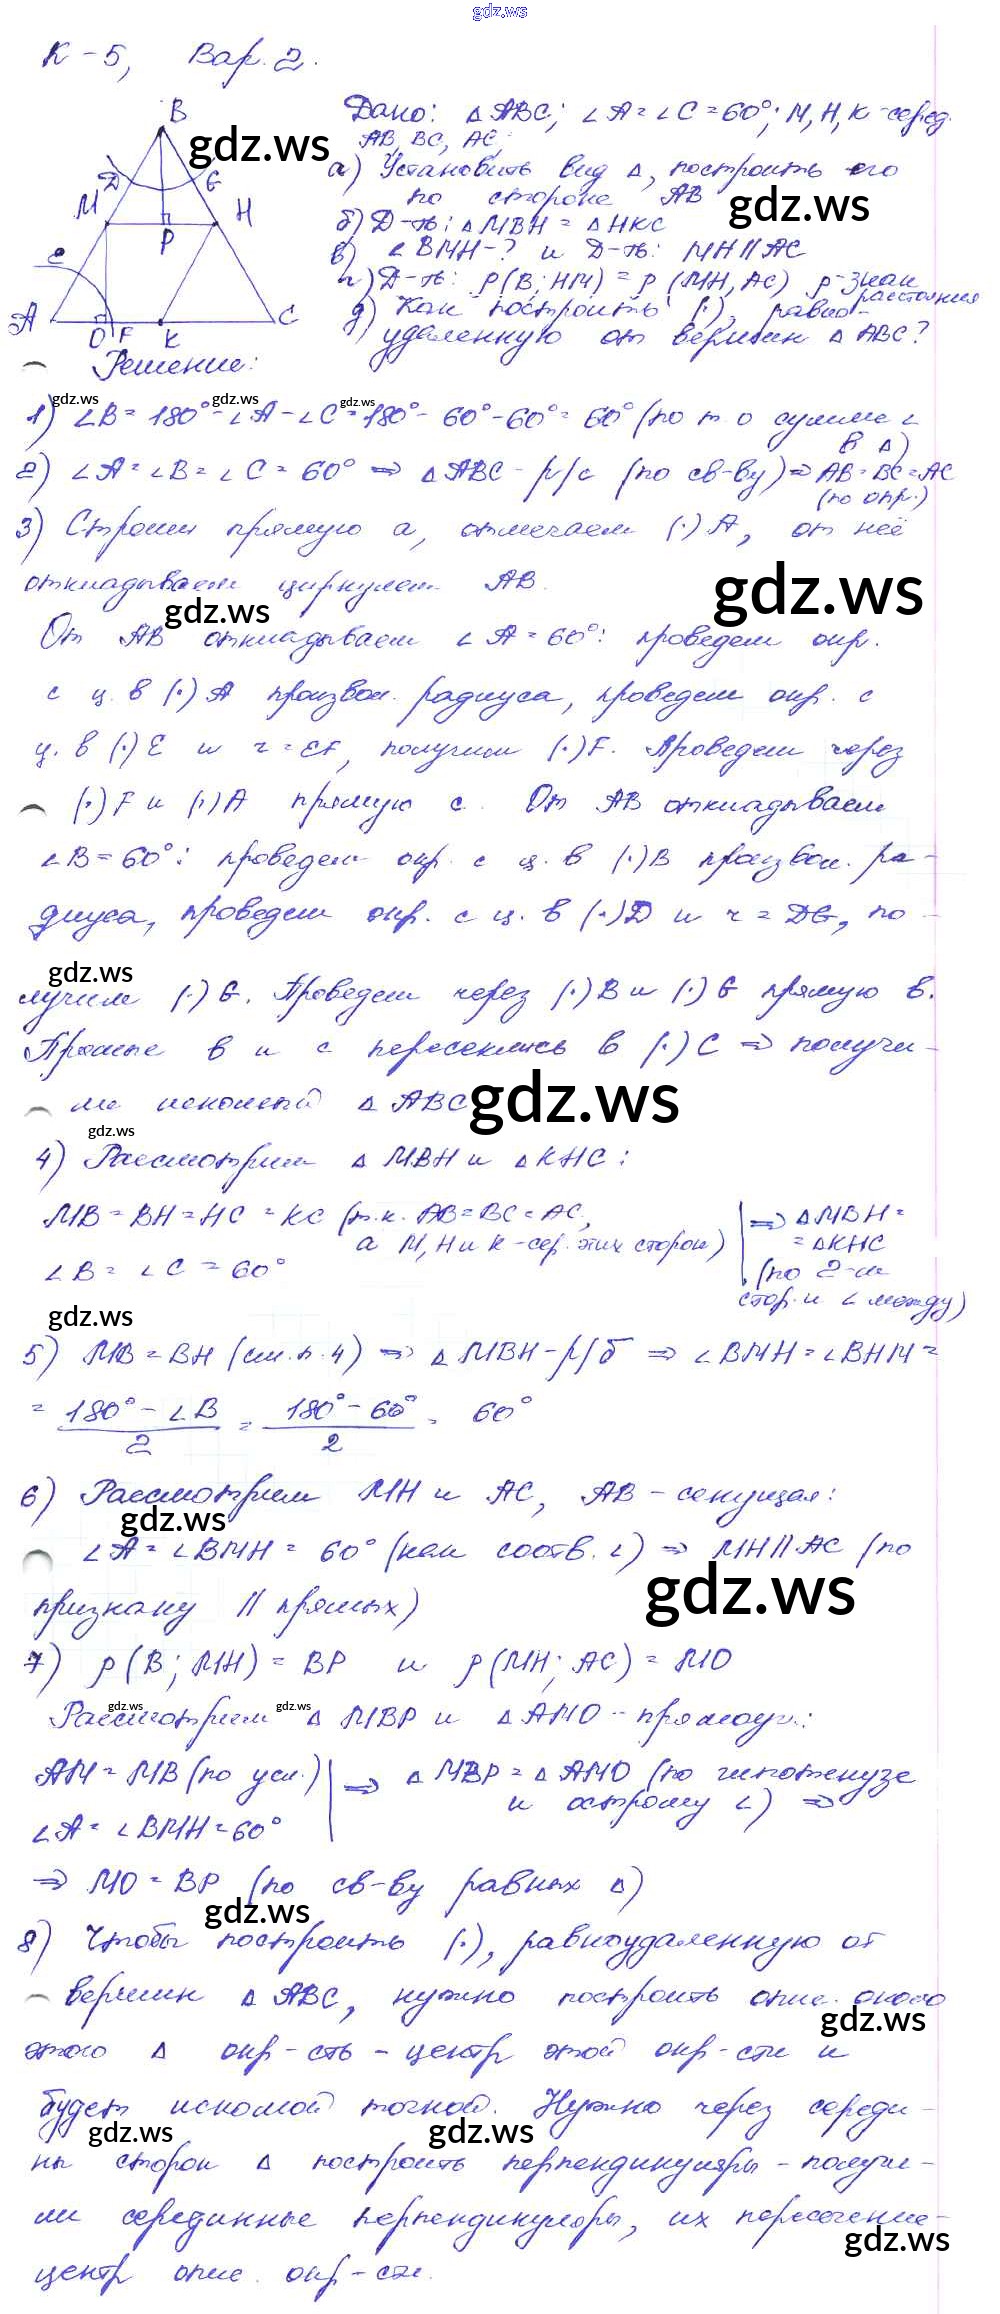 gdz.ws
К-5, Вар. 2.
Дано: △ABC; ∠A=∠C=60°; M, H, K-серед.
AB, BC, AC;
а) Установить вид △, построить его
по стороне AB
б) Д-ть: △MBH = △HKC
в) ∠BMH-? и Д-ть: MH∥AC
г) Д-ть: ρ(B; HM) = ρ(MH, AC) ρ-знак
расстояния
д) Как построить (·), равно-
удаленную от вершин △ABC?
B
D G
M H
P
e
A O F K C
Решение:
1) ∠B = 180°-∠A-∠C = 180°-60°-60°=60° (по т о сумме ∠
в △)
2) ∠A=∠B=∠C=60° ⇒ △ABC-р/с (по св-ву) ⇒ AB=BC=AC
(по опр.)
3) Строим прямую a, отмечаем (·)A, от неё
откладываем циркулем AB.
От AB откладываем ∠A=60°: проведем окр.
с ц. в (·)A произвол. радиуса, проведем окр. с
ц. в (·)E и r=EF, получим (·)F. Проведем через
(·)F и (·)A прямую c. От AB откладываем
∠B=60°: проведем окр. с ц. в (·)B произвол. ра-
диуса, проведем окр. с ц. в (·)D и r=DG, по-
лучим (·)G. Проведем через (·)B и (·)G прямую в.
Прямые в и c пересеклись в (·)C ⇒ получи-
ли искомый △ABC
4) Рассмотрим △MBH и △KHC:
MB=BH=HC=KC (т.к. AB=BC=AC,
а M, H и K-сер. этих сторон)
∠B=∠C=60°
⇒ △MBH=
=△KHC
(по 2-м
стор. и ∠ между)
5) MB=BH (см. п. 4) ⇒ △MBH-р/б ⇒ ∠BMH=∠BHM=
= (180°-∠B)/2 = (180°-60°)/2 = 60°
6) Рассмотрим MH и AC, AB-секущая:
∠A=∠BMH=60° (как соотв. ∠) ⇒ MH∥AC (по
признаку ∥ прямых)
7) ρ(B; MH)=BP и ρ(MH; AC)=MO
Рассмотрим △MBP и △AMO-прямоуг.:
AM=MB (по усл.)
∠A=∠BMH=60°
⇒ △MBP=△AMO (по гипотенузе
и острому ∠) ⇒
⇒ MO=BP (по св-ву равных △)
8) Чтобы построить (·), равноудаленную от
вершин △ABC, нужно построить опис. около
этого △ окр-сть - центр этой окр-сти и
будет искомой точкой. Нужно через середи-
ны сторон △ построить перпендикуляры - получи-
ли серединные перпендикуляры, их пересечение-
центр опис. окр-сти.